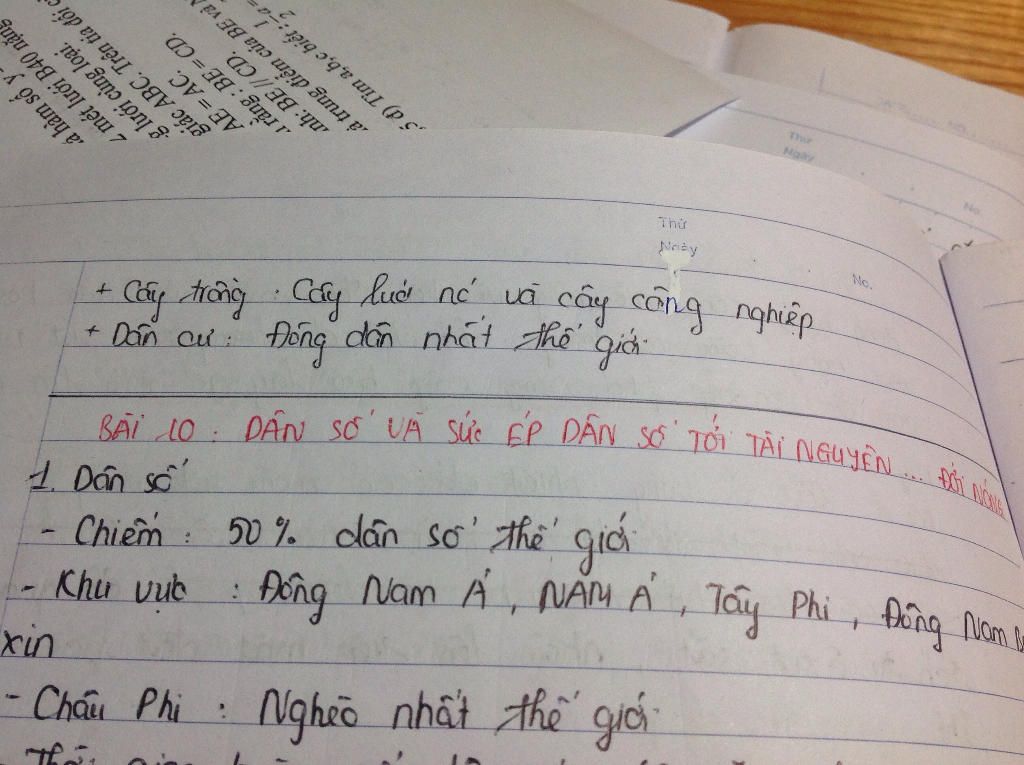 5 d) Tìm a,b,c biết :
là trung điểm của BE và
nh: BE // CD.
rằng : BE = CD.
AE = AC.
giác ABC. Trên tia đối
g lưới cùng loại.
2 mét lưới B40 nặng
hàm số y
Thứ
Ngày
No.
Thứ
Ngày
No.
+ Cây trồng : Cây lươ nớ và cây công nghiệp
+ Dân cư : Đông dân nhất thế giới
BÀI 10 : DÂN SỐ VÀ SỨC ÉP DÂN SỐ TỚI TÀI NGUYÊN... ĐỚI NÓNG
1. Dân số
- Chiếm : 50% dân số thế giới
- Khu vực : Đông Nam Á, NAM Á, Tây Phi, Đông Nam B
xin
- Châu Phi : Nghèo nhất thế giới